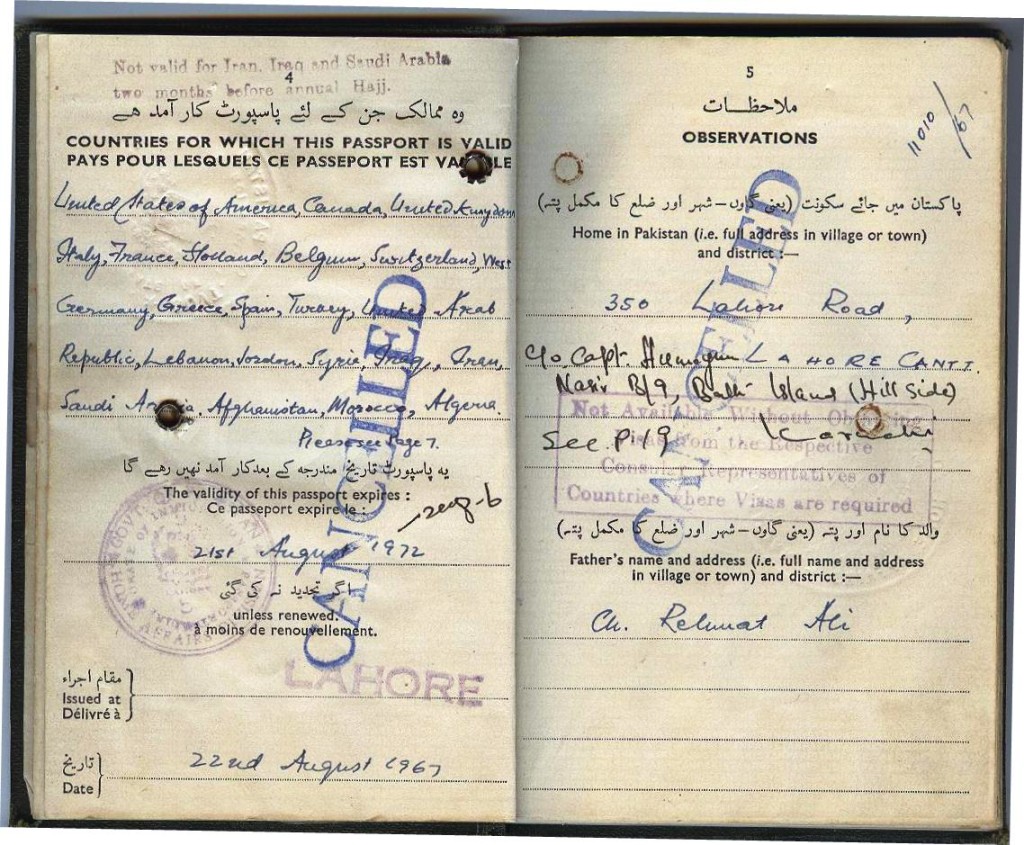 Not valid for Iran, Iraq and Saudi Arabia
4
two months before annual Hajj.
وہ ممالک جن کے لئے پاسپورٹ کار آمد ہے
COUNTRIES FOR WHICH THIS PASSPORT IS VALID
PAYS POUR LESQUELS CE PASSEPORT EST VALABLE
United States of America, Canada, United Kingdom
Italy, France, Holland, Belgium, Switzerland, West
Germany, Greece, Spain, Turkey, United Arab
Republic, Lebanon, Jordon, Syria, Iraq, Iran,
Saudi Arabia, Afghanistan, Morocco, Algeria.
Please see Page 7.
یہ پاسپورٹ تاریخ مندرجہ کے بعد کار آمد نہیں رہے گا
The validity of this passport expires :
Ce passeport expire le :
21st August 1972
اگر تجدید نہ کی گئی
unless renewed.
à moins de renouvellement.
CANCELLED
LAHORE
مقام اجراء
Issued at
Délivré à
تاریخ
Date
22nd August 1967
5
ملاحظات
OBSERVATIONS
11010/67
پاکستان میں جائے سکونت (یعنی گاوں–شہر اور ضلع کا مکمل پتہ)
Home in Pakistan (i.e. full address in village or town)
and district :—
350 Lahore Road,
LAHORE CANTT.
C/o. Capt. Humayun
Nasir B/9, Bath Island (Hill Side)
Karachi
See P.19
Not Available Without Obtaining
Visas from the Respective
Consular Representatives of
Countries where Visas are required
CANCELLED
والد کا نام اور پتہ (یعنی گاوں–شہر اور ضلع کا مکمل پتہ)
Father's name and address (i.e. full name and address
in village or town) and district :—
Ch. Rehmat Ali